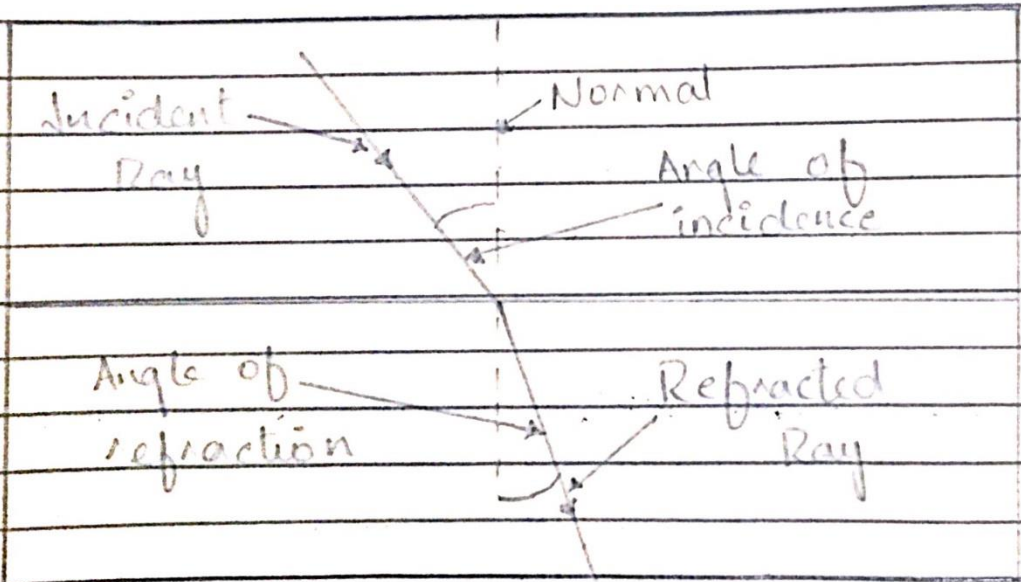 Normal
Incident
Ray
Angle of
incidence
Angle of
refraction
Refracted
Ray